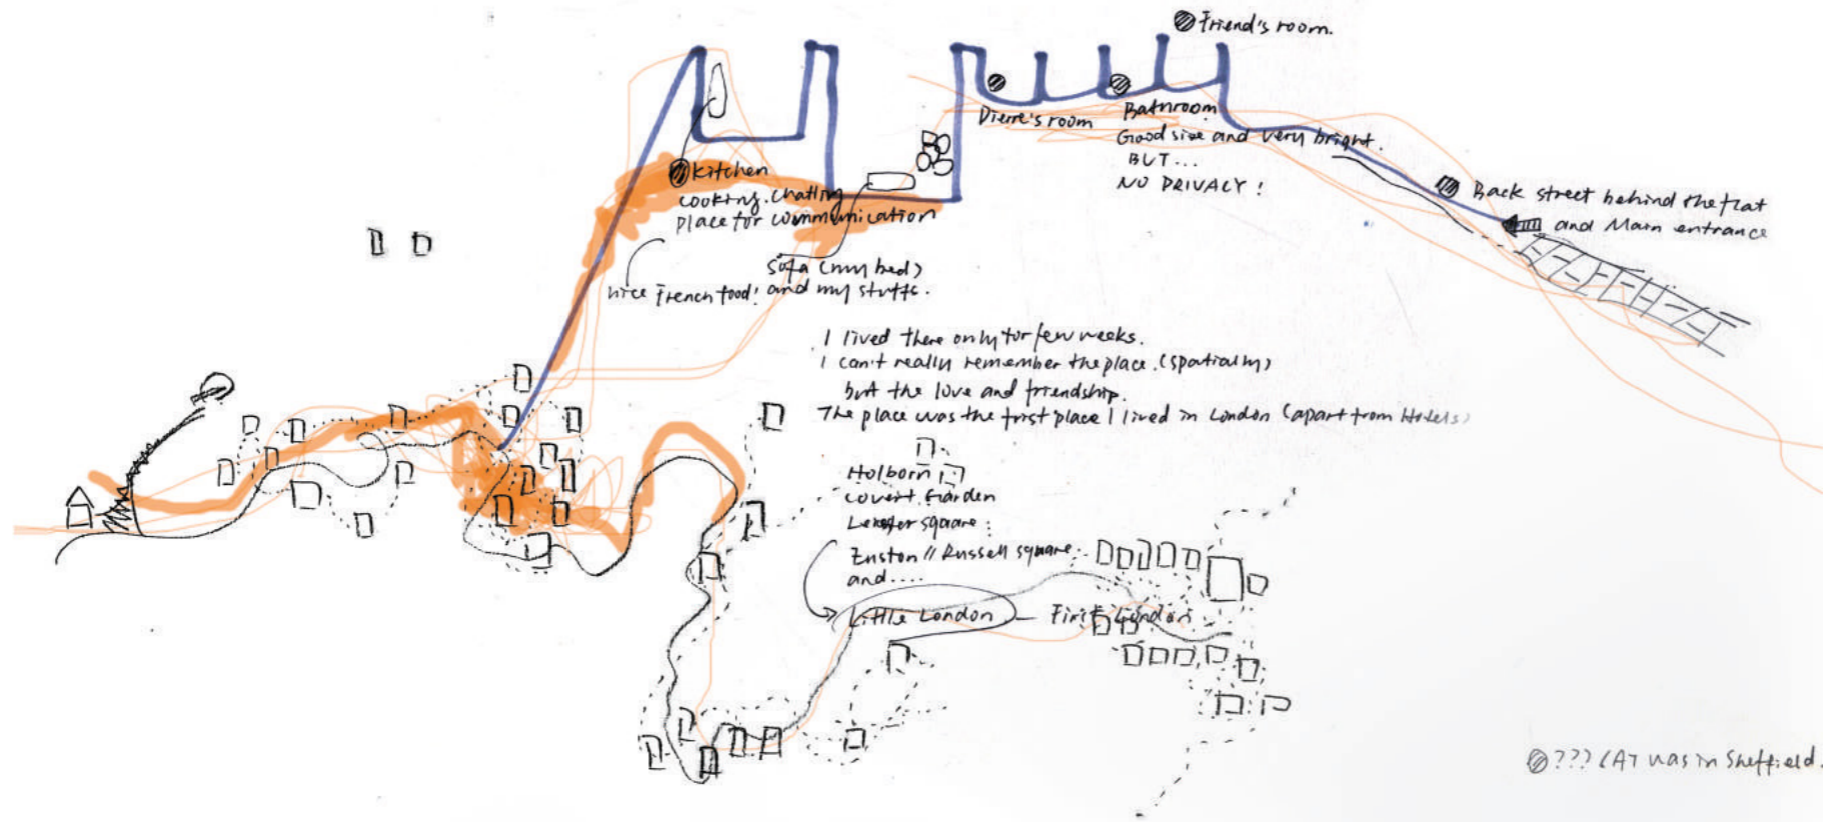 Friend's room.
Pierre's room
Bathroom
Good size and very bright.
BUT...
NO PRIVACY!
Kitchen
cooking. chatting
place for communication
Back street behind the flat
and Main entrance
Sofa (my bed)
and my stuffs.
nice French food!
I lived there only for few weeks.
I can't really remember the place. (spatially)
but the love and friendship.
The place was the first place I lived in London (apart from Hotels)
Holborn
Covent. Garden
Leicester square :
Euston // Russell square.
and....
Little London — First London
??? CAT was in Sheffield.